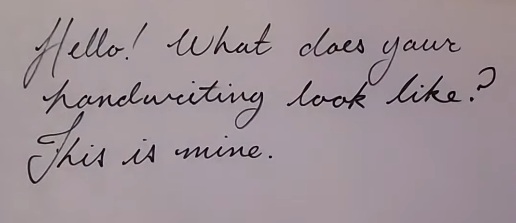 Hello! What does your
handwriting look like?
This is mine.